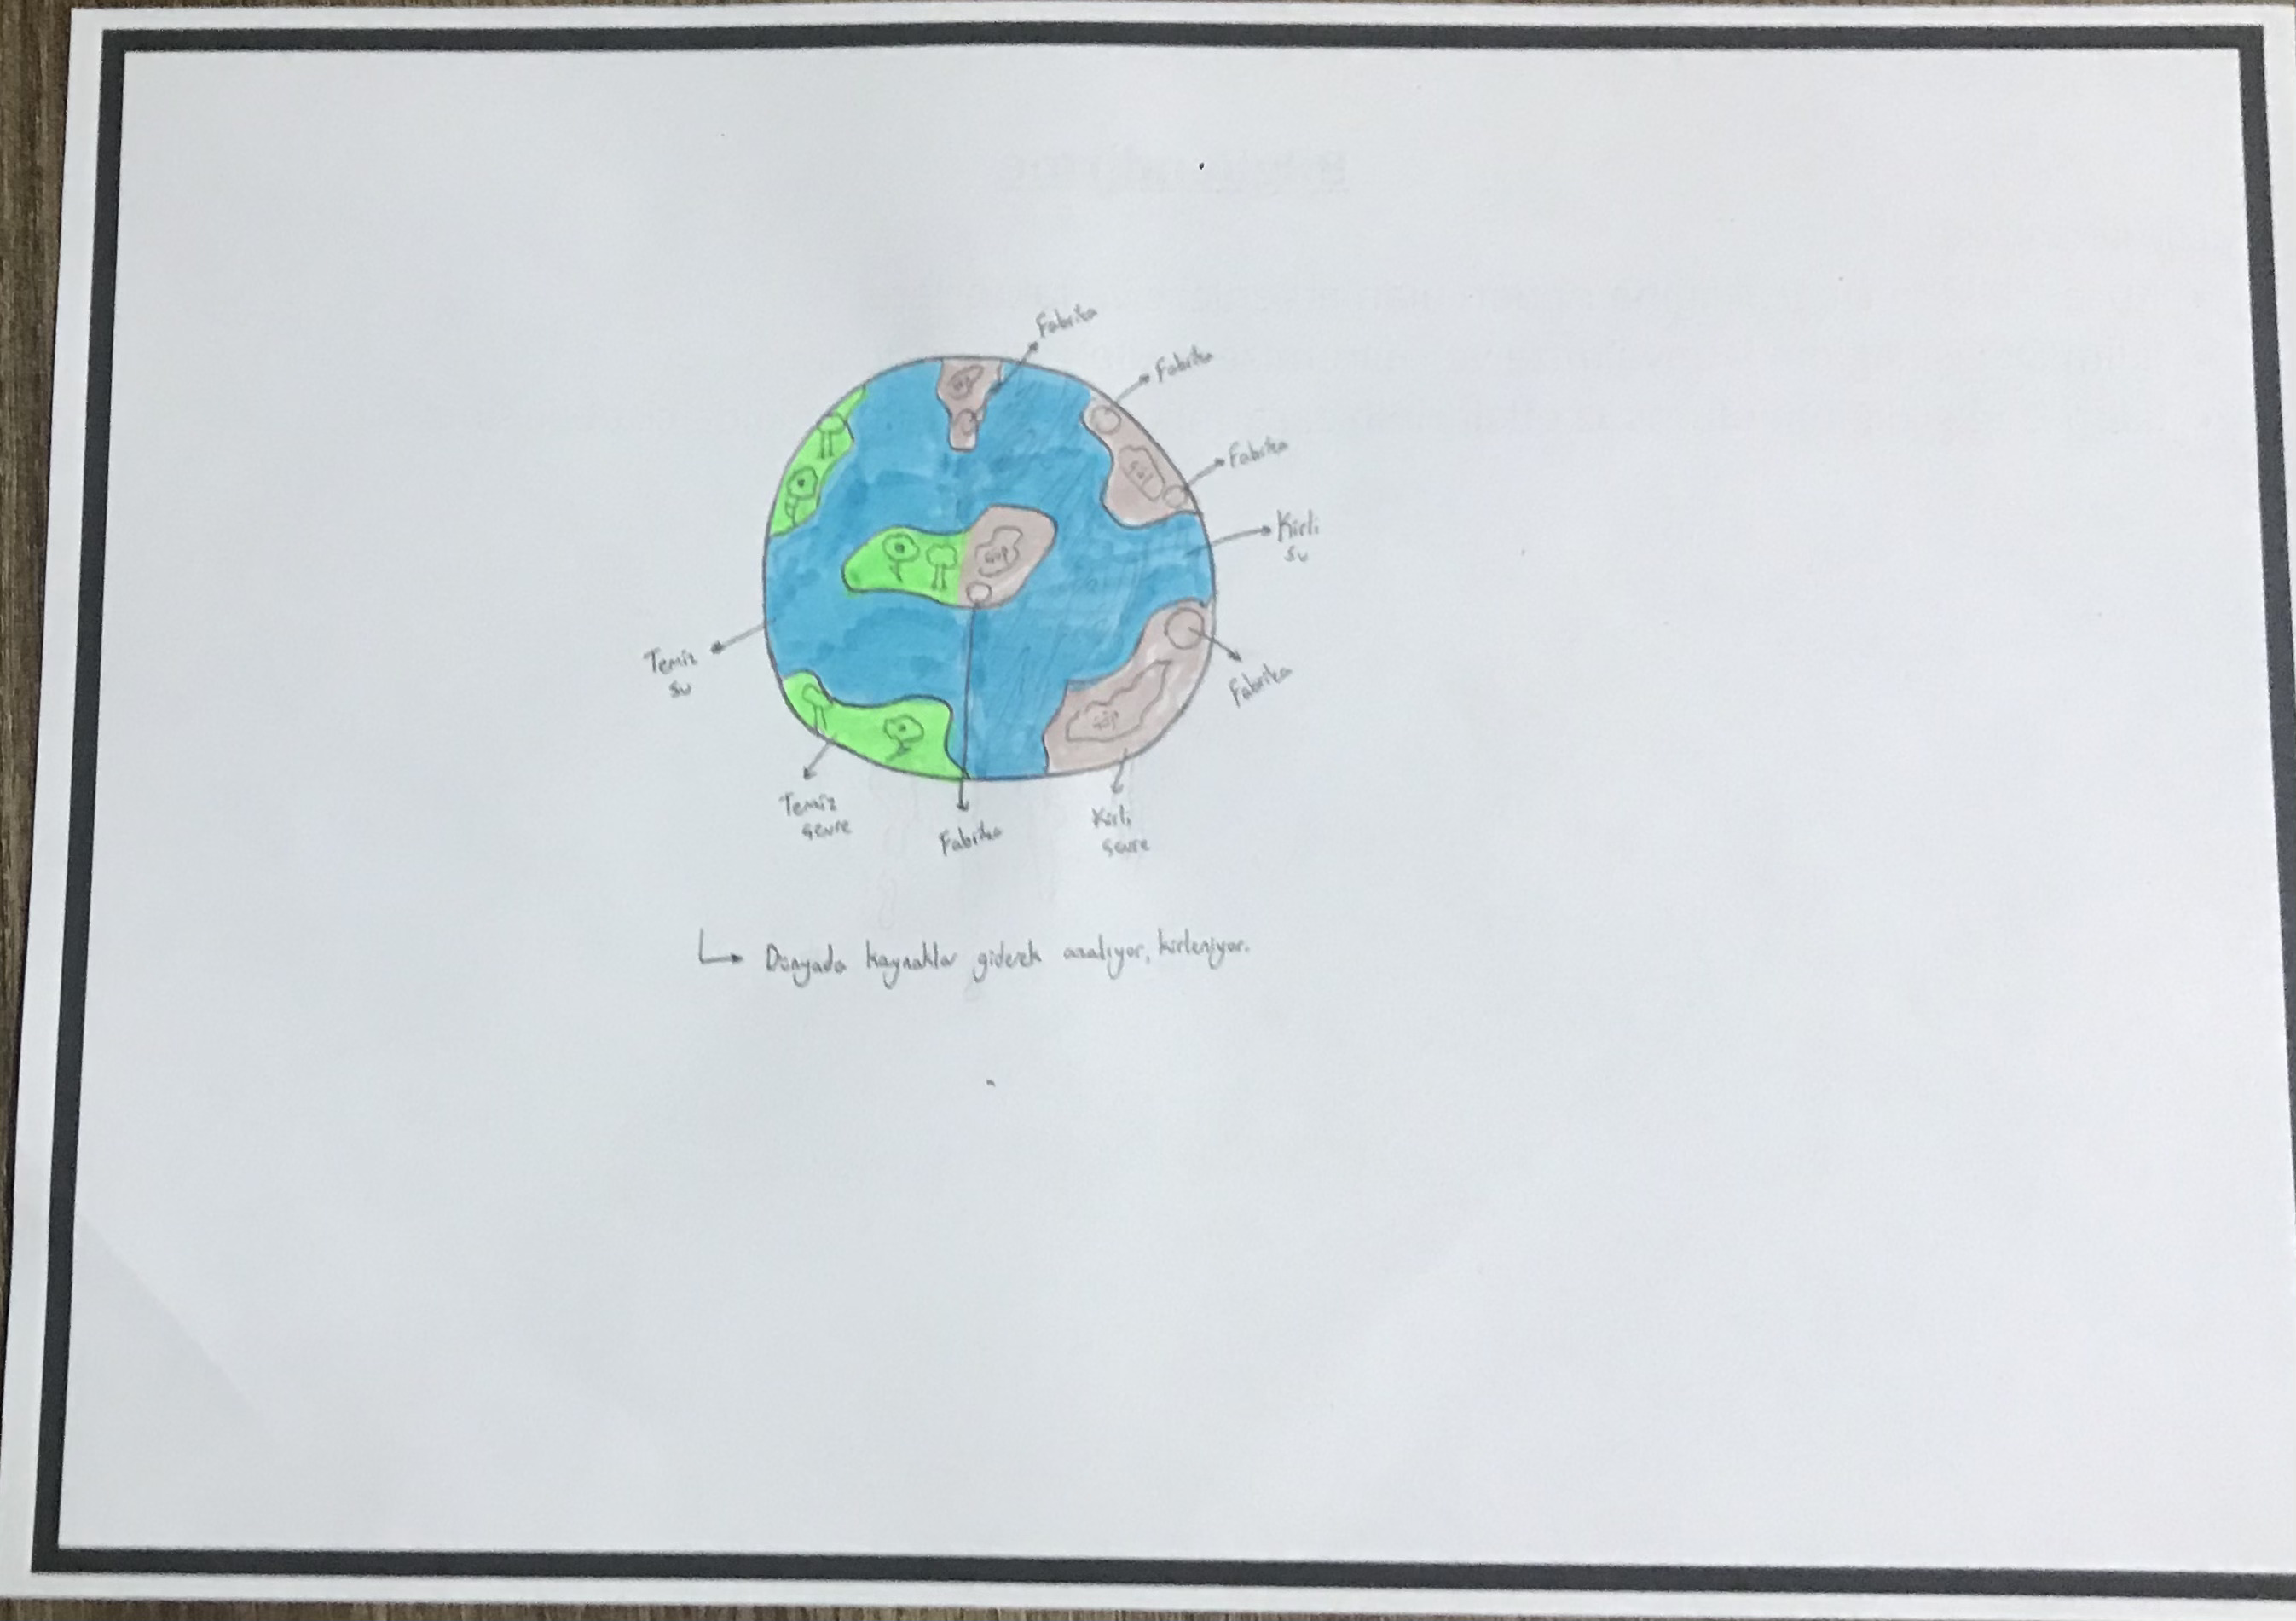 Fabrika
Fabrika
Fabrika
Kirli
su
Çöp
Çöp
Çöp
Temiz
su
Fabrika
Çöp
Temiz
çevre
Fabrika
Kirli
çevre
Dünyada kaynaklar giderek azalıyor, kirleniyor.